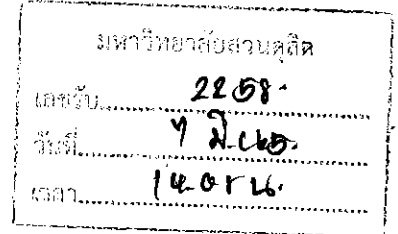 มหาวิทยาลัยสวนดุสิต
เลขรับ 2258
วันที่ 7 มี.ค.
เวลา